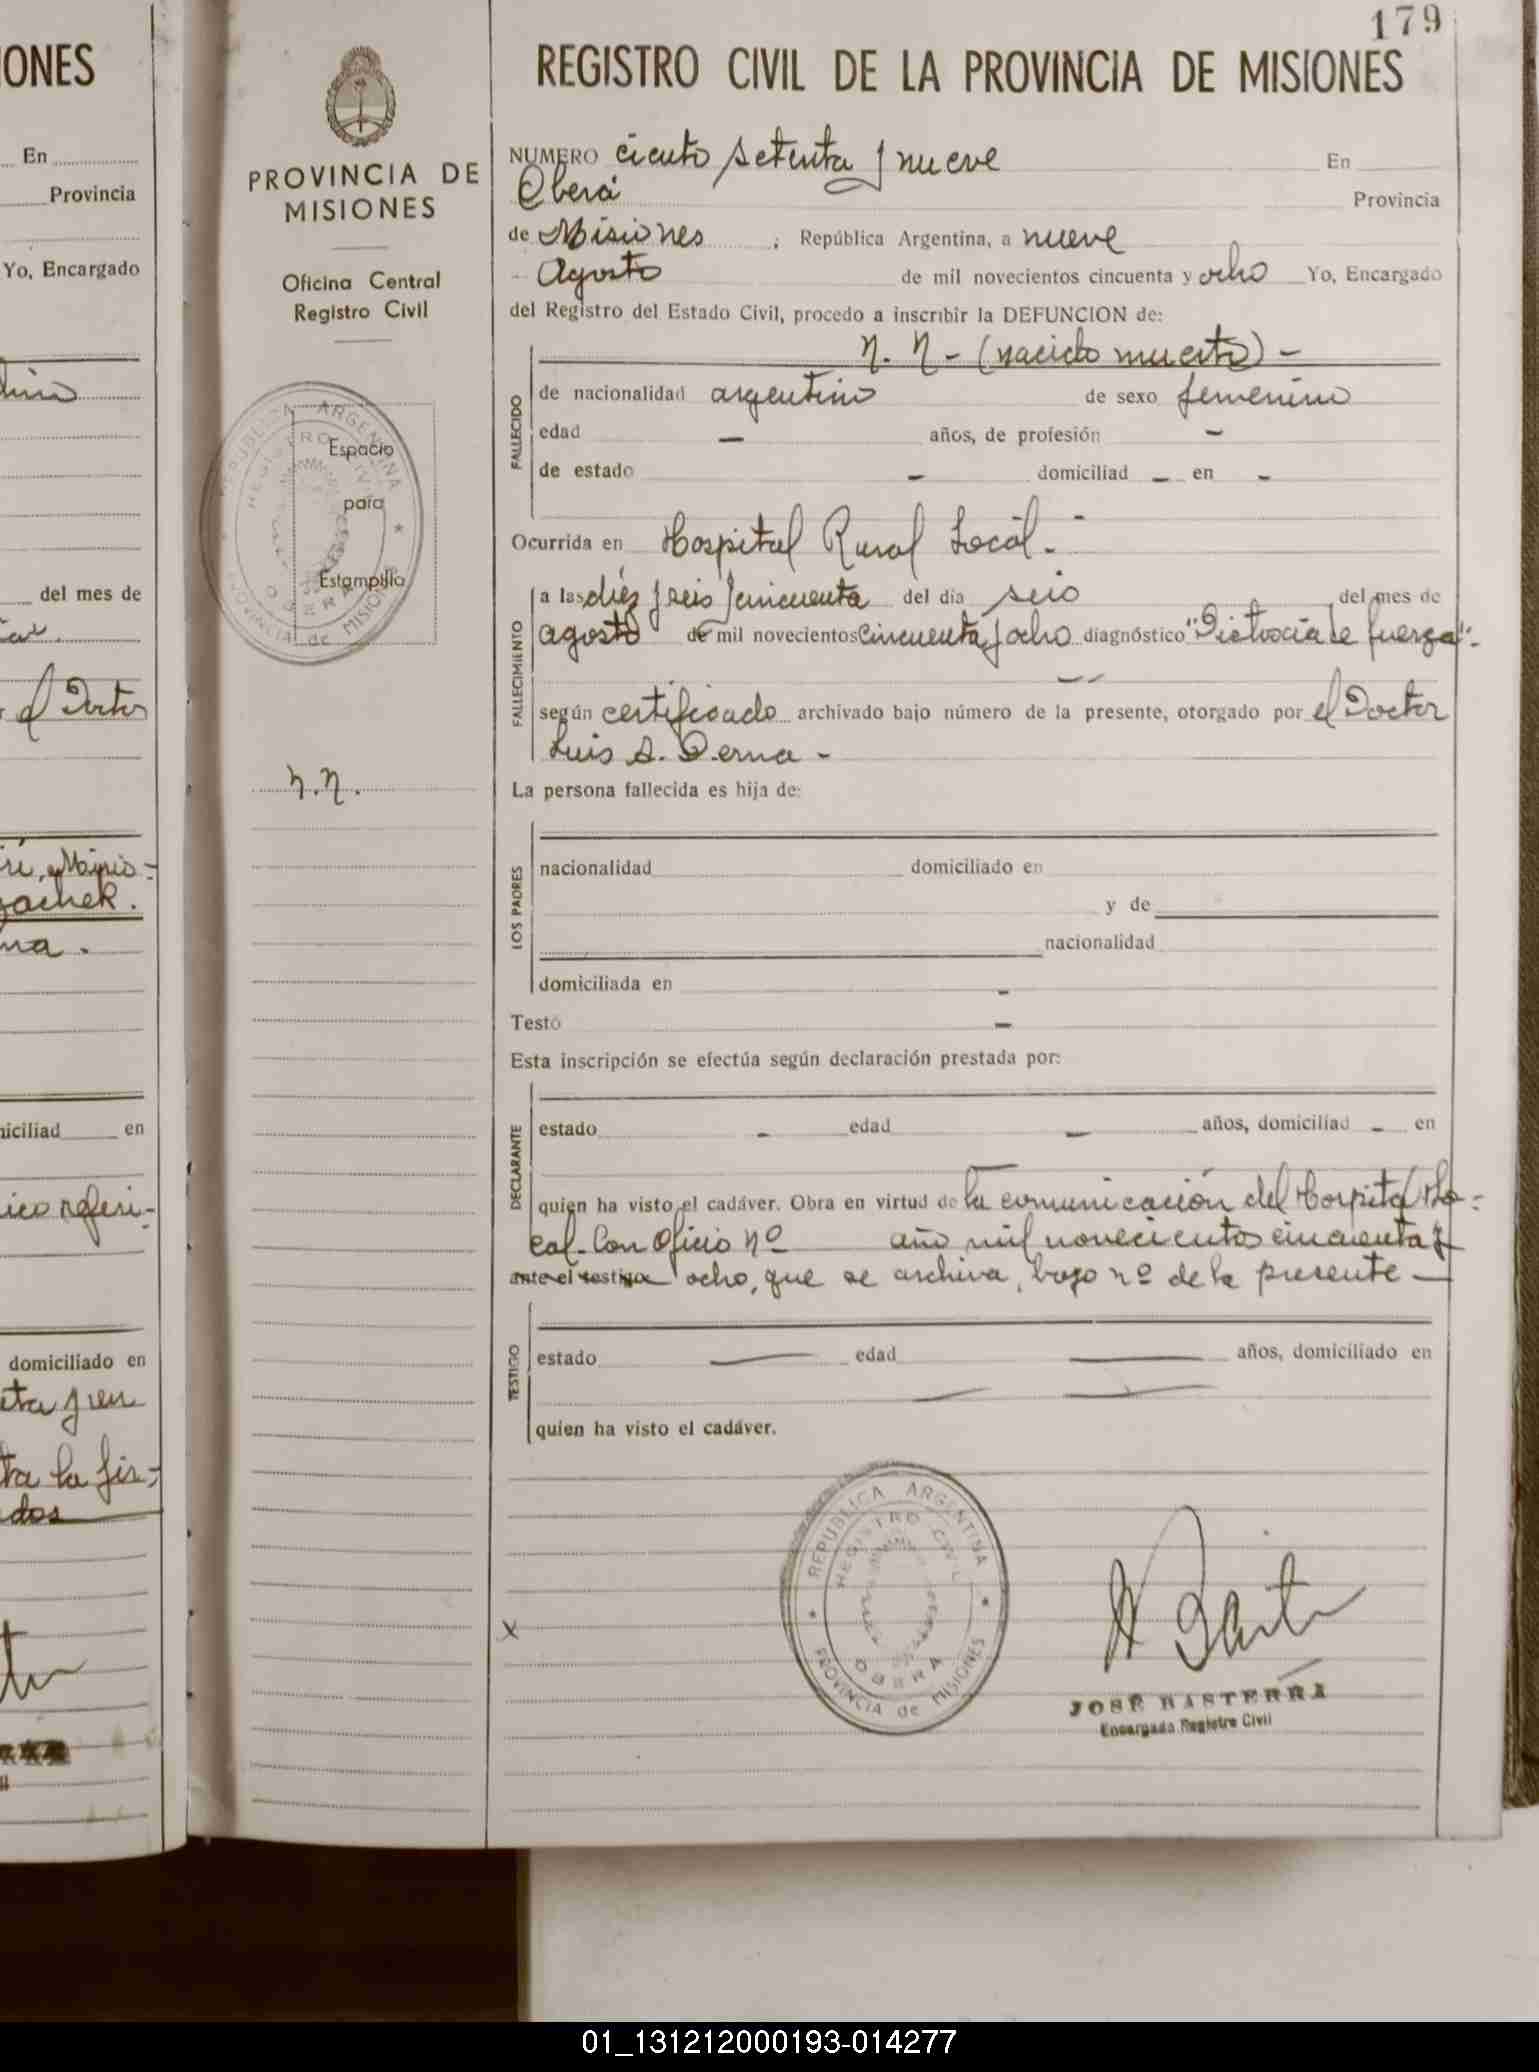 179
ONES
REGISTRO CIVIL DE LA PROVINCIA DE MISIONES
PROVINCIA DE
MISIONES
Oficina Central
Registro Civil
Espacio
para
Estampilla
REPUBLICA ARGENTINA
REGISTRO CIVIL
OBERA
PROVINCIA de MISIONES
N.N.
NUMERO ciento setenta y nueve En
Oberá Provincia
de Misiones ; República Argentina, a nueve
Agosto de mil novecientos cincuenta y ocho Yo, Encargado
del Registro del Estado Civil, procedo a inscribir la DEFUNCION de:
N. N - (nacido muerto) -
FALLECIDO
de nacionalidad argentino de sexo femenino
edad — años, de profesión -
de estado - domiciliad - en -
Ocurrida en Hospital Rural Local.-
FALLECIMIENTO
a las diéz y seis y cincuenta del día seis del mes de
agosto de mil novecientos cincuenta y ocho diagnóstico "Distocia de fuerza".-
según certificado archivado bajo número de la presente, otorgado por el Doctor
Luis A. Derna -
La persona fallecida es hija de:
LOS PADRES
nacionalidad domiciliado en
y de
nacionalidad
domiciliada en -
Testó -
Esta inscripción se efectúa según declaración prestada por:
DECLARANTE
estado - edad - años, domiciliad - en
quien ha visto el cadáver. Obra en virtud de la comunicación del Hospital Lo-
cal. Con Oficio Nº año mil novecientos cincuenta y
ante el testigo ocho, que se archiva, bajo nº de la presente —
TESTIGO
estado — edad — años, domiciliado en
quien ha visto el cadáver.
x
REPUBLICA ARGENTINA
REGISTRO CIVIL
OBERA
PROVINCIA de MISIONES
JOSÉ BASTERRA
Encargado Registro Civil
En
Provincia
Yo, Encargado
del mes de
el Doctor
miciliad en
domiciliado en
01_131212000193-014277